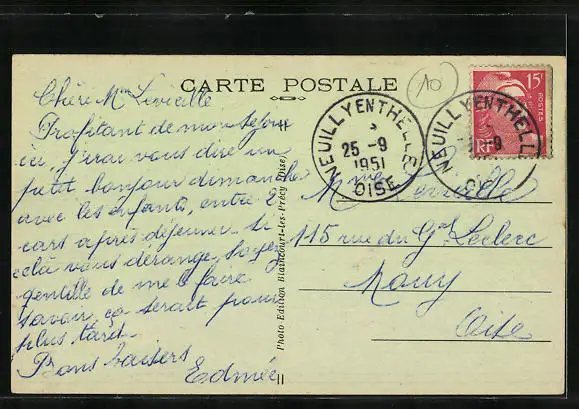 CARTE POSTALE
10
Chère Mme Levieille
Profitant de mon séjour
ici, j'irai vous dire un
petit bonjour dimanche
avec les enfants, entre 2
cars après déjeuner. Si
celà vous dérange, soyez
gentille de me le faire
savoir, ça serait pour
plus tard.
Bons baisers
Edmée
Photo Edition Blaincourt-les-Précy (Oise)
NEUILLY EN THELLE
25 - 9
1951
OISE
NEUILLY EN THELLE
15F
POSTES
RF
Mme Levieille
115 rue du Gal Leclerc
Mouy
Oise